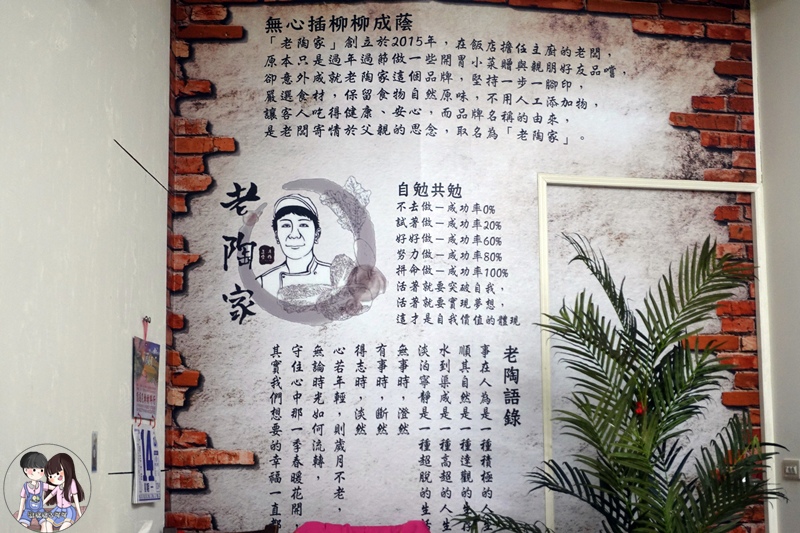 無心插柳柳成蔭
「老陶家」創立於2015年，在飯店擔任主廚的老闆，
原本只是過年過節做一些開胃小菜贈與親朋好友品嚐，
卻意外成就老陶家這個品牌，堅持一步一腳印，
嚴選食材，保留食物自然原味，不用人工添加物，
讓客人吃得健康、安心，而品牌名稱的由來，
是老闆寄情於父親的思念，取名為「老陶家」。
老陶家
自勉共勉
不去做－成功率0%
試著做－成功率20%
好好做－成功率60%
努力做－成功率80%
拼命做－成功率100%
活著就要突破自我，
活著就要實現夢想，
這才是自我價值的體現
老陶語錄
事在人為是一種積極的人
順其自然是一種達觀的生
水到渠成是一種高超的人生
淡泊寧靜是一種超脫的生活
無事時，澄然
有事時，斷然
得志時，淡然
心若年輕，則歲月不老，
無論時光如何流轉，
守住心中那一季春暖花開，
其實我們想要的幸福一直都
14